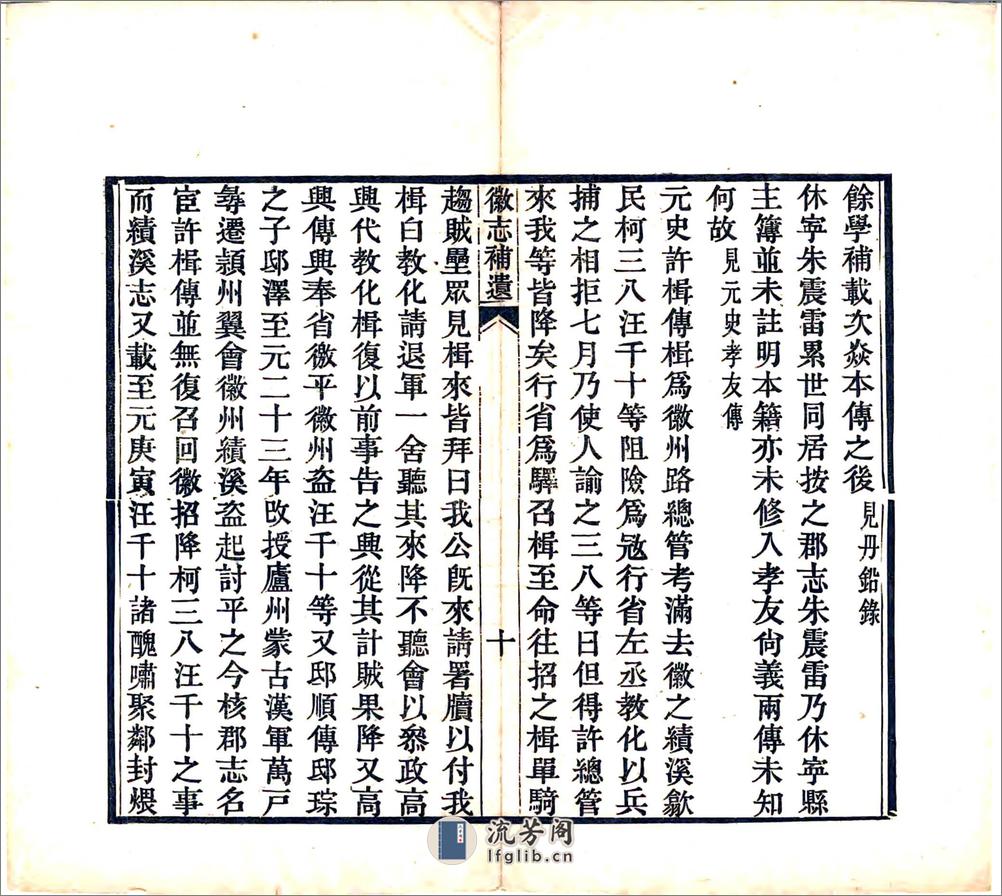 餘學補載次焱本傳之後見丹鉛錄
休寧朱震雷累世同居按之郡志朱震雷乃休寧縣
主簿並未註明本籍亦未修入孝友尙義兩傳未知
何故見元史孝友傳
元史許楫傳楫爲徽州路總管考滿去徽之績溪歙
民柯三八汪千十等阻險爲寇行省左丞教化以兵
捕之相拒七月乃使人諭之三八等曰但得許總管
來我等皆降矣行省爲驛召楫至命往招之楫單騎
徽志補遺
十
趨賊壘眾見楫來皆拜曰我公旣來請署牘以付我
楫白教化請退軍一舍聽其來降不聽會以叅政高
興代教化楫復以前事告之興從其計賊果降又高
興傳興奉省檄平徽州盜汪千十等又邸順傳邸琮
之子邸澤至元二十三年改授廬州蒙古漢軍萬戸
尋遷潁州翼會徽州績溪盜起討平之今核郡志名
宦許楫傳並無復召回徽招降柯三八汪千十之事
而績溪志又載至元庚寅汪千十諸醜嘯聚鄰封煨
流芳阁
lfglib.cn